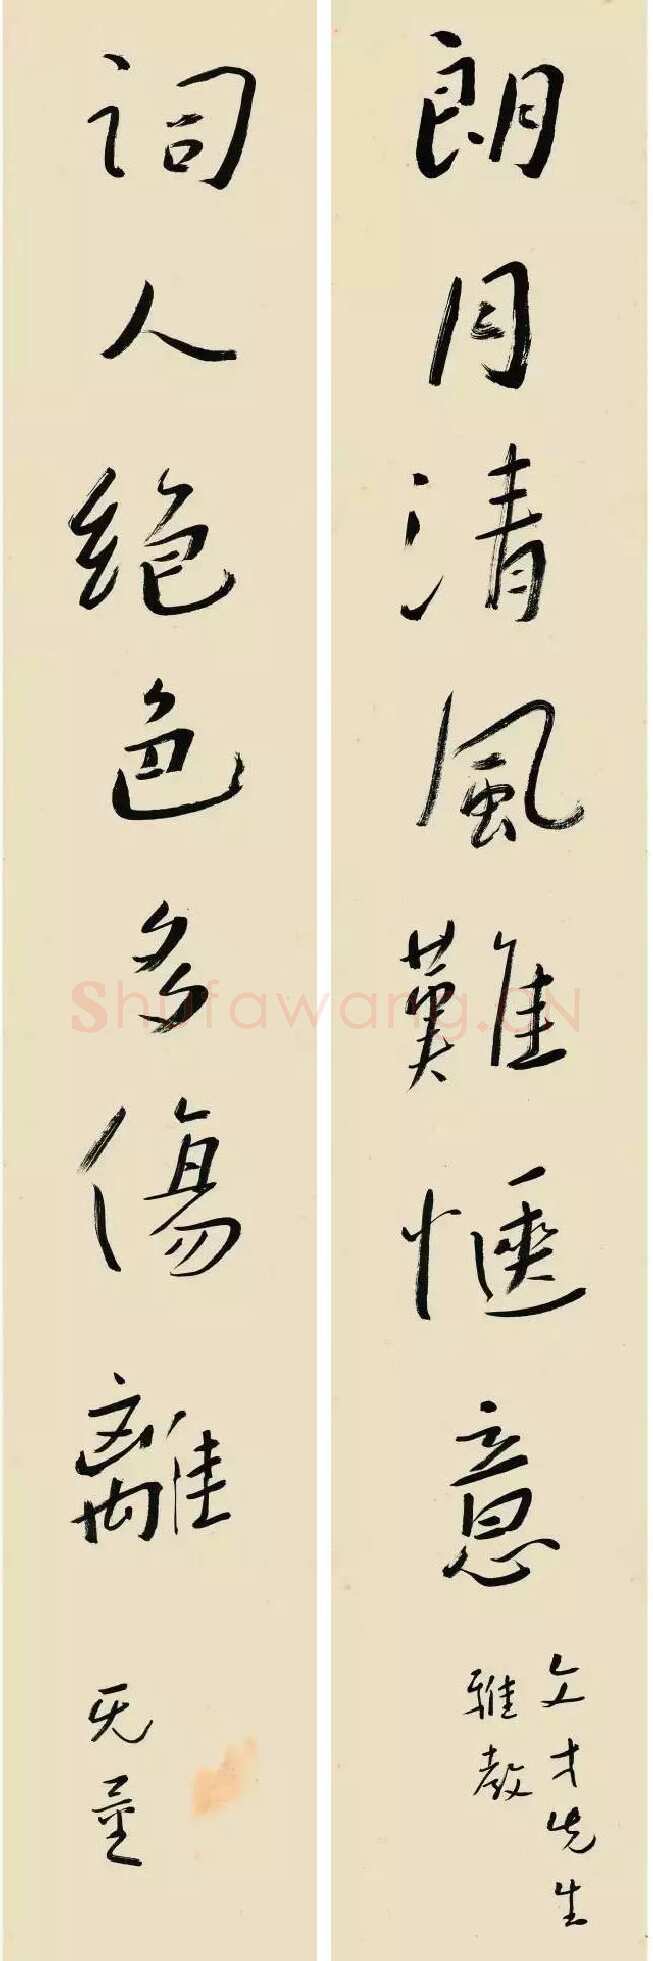 朗月清風難愜意
文才先生
雅教
詞人絕色多傷離
无量
Shufawang.CN